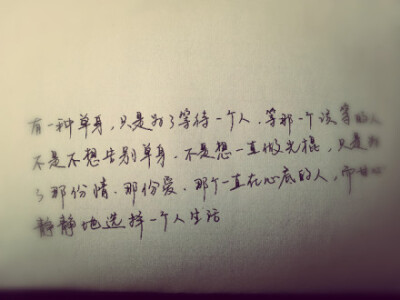 有一种单身，只是为了等待一个人，等那一个该等的人
不是不想告别单身．不是想一直做光棍，只是为
了那份情．那份爱．那个一直在心底的人，而甘心
静静地选择一个人生活